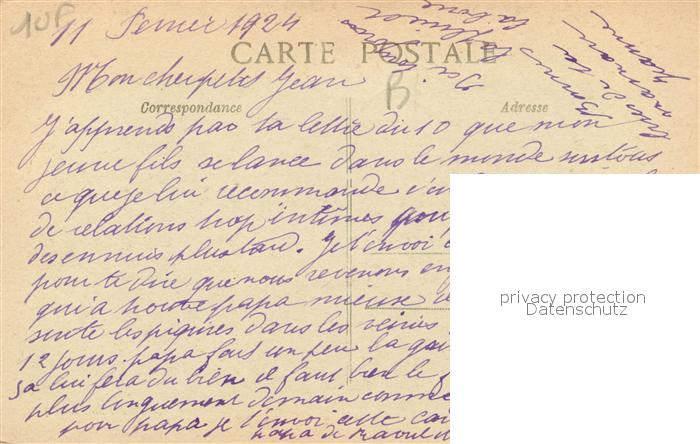 10F
11 Fevrier 1924
CARTE POSTALE
Mon cher petit Jean
B
Correspondance
Adresse
J'apprends par ta lettre du 10 que mon
jeune fils se lance dans le monde surtout
ce que je lui recommande c'
de relations trop intimes pour
des ennuis plus tard. Je t'envoi
pour te dire que nous revenons en
qui a trouve papa mieux
suite les piqures dans les veines
12 jours. papa fait un peu la
sa lui fera du bien il faut bien le
plus longuement demain comme
pour papa je t'envoi cette car
papa de Raoul
Bonnes
de ta
maman
Jeanne
privacy protection
Datenschutz